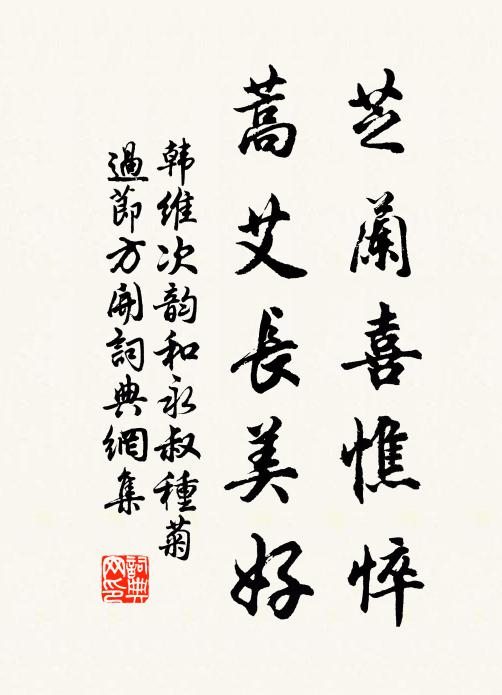 芝蘭喜憔悴
蒿艾長美好
韩維次韵和永叔種菊
過節方開詞典網集
詞典网印